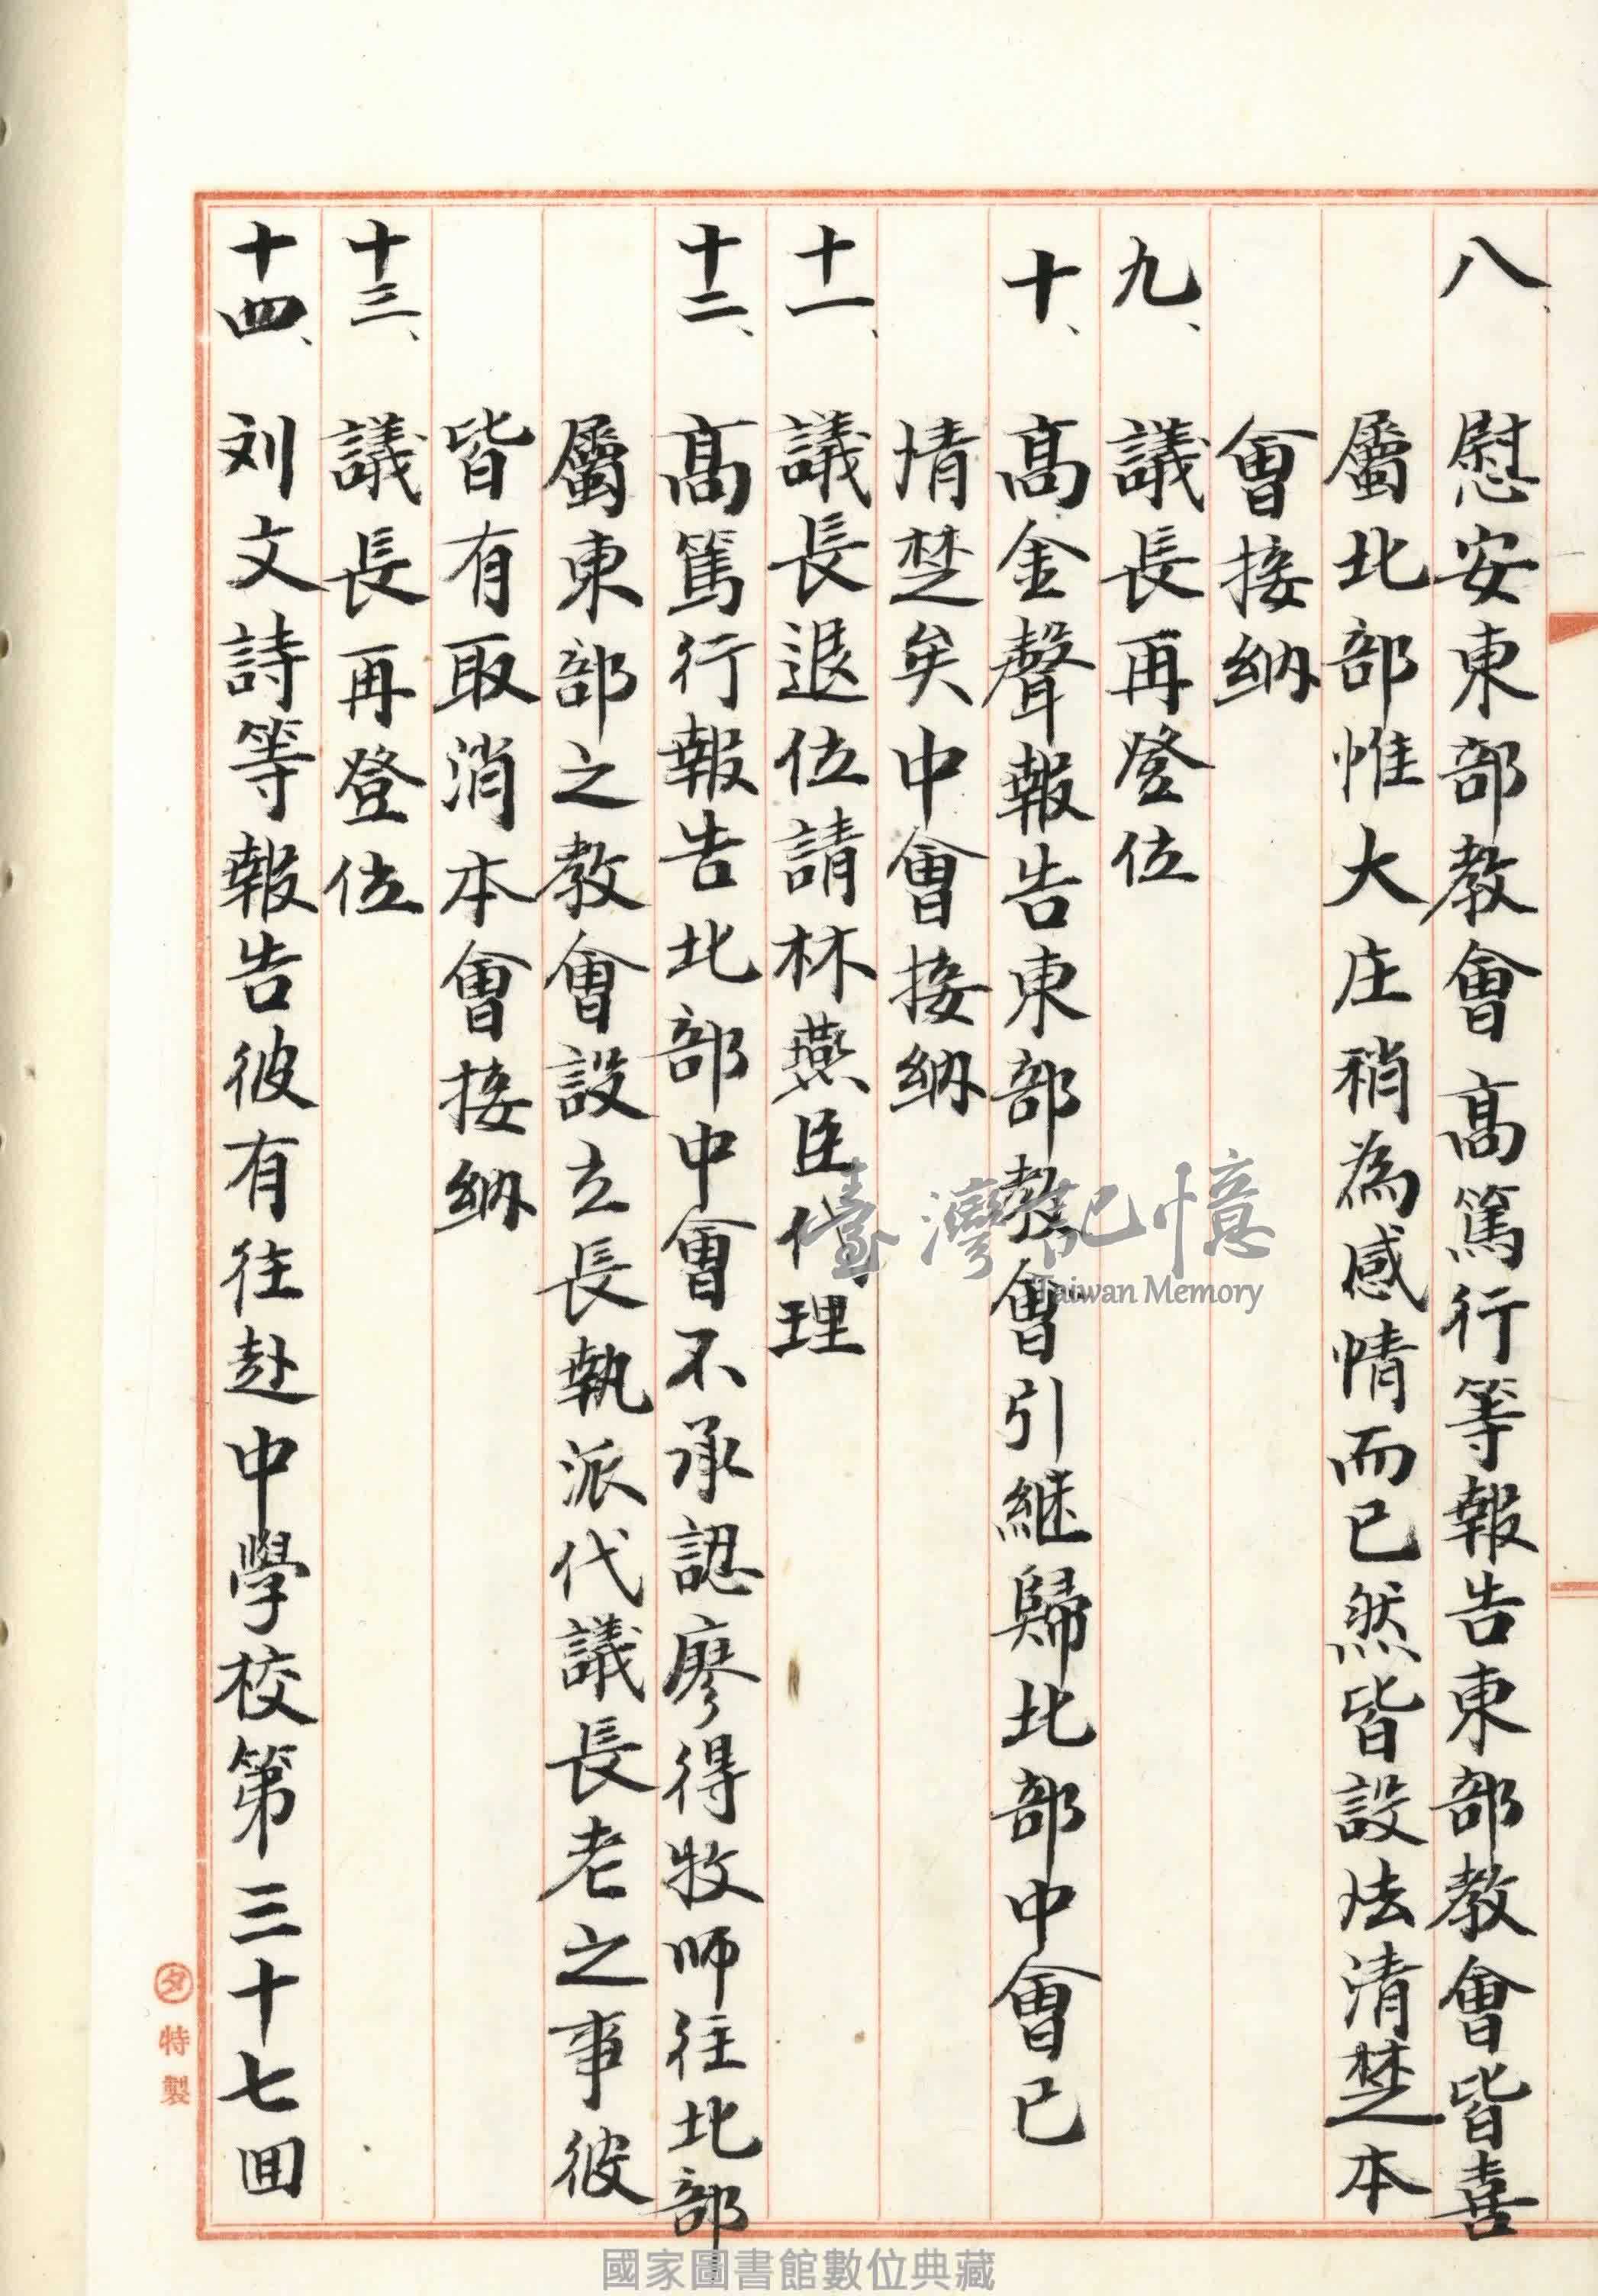 八、慰安東部教會高篤行等報告東部教會皆喜
屬北部惟大庄稍為感情而已然皆設法清楚本
會接納
九、議長再登位
十、高金聲報告東部教會引継歸北部中會已
情楚矣中會接納
十一、議長退位請林燕臣代理
十二、高篤行報告北部中會不承認廖得牧師往北部
屬東部之教會設立長執派代議長老之事彼
皆有取消本會接納
十三、議長再登位
十四、刘文詩等報告彼有往赴中學校第三十七回
臺灣記憶
Taiwan Memory
㋟特製
國家圖書館數位典藏